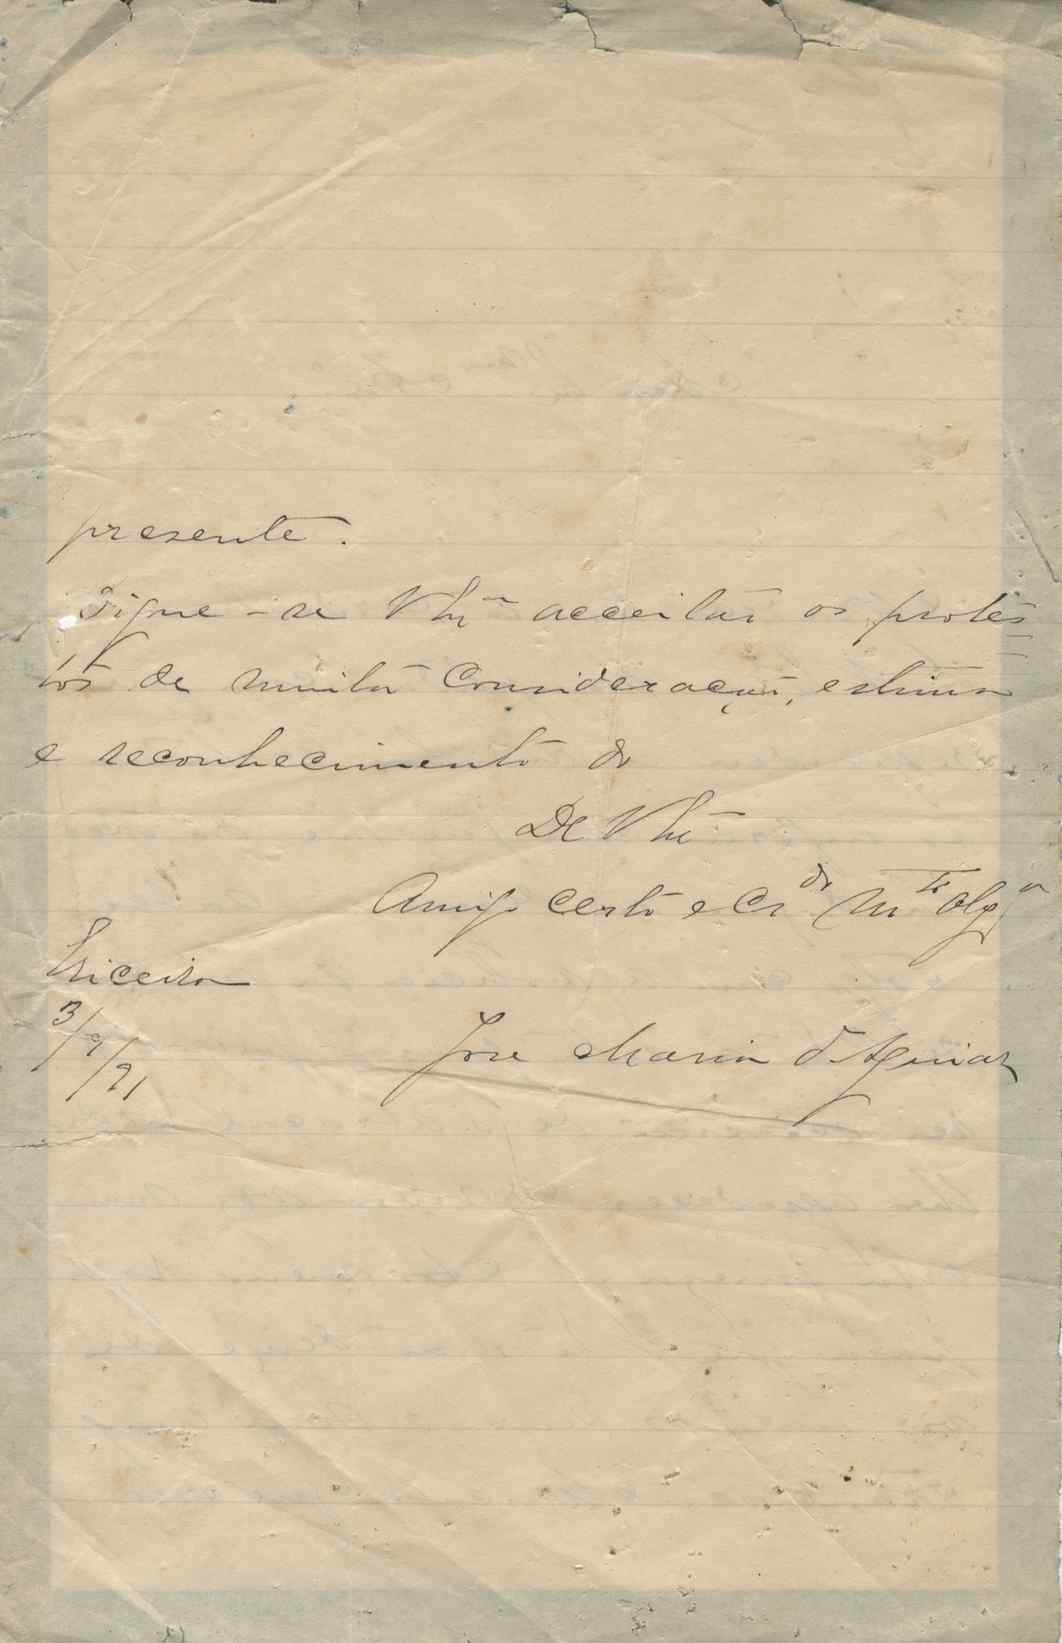 presente.
Digne-se V Ex.ª acceitar os protes
tos de muita Consideração, estima
e reconhecimento do
De V Ex.ª
Amigo certo e Cr.do M.to Obg.o
Ericeira
3/9/91
José Maria d'Aguiar